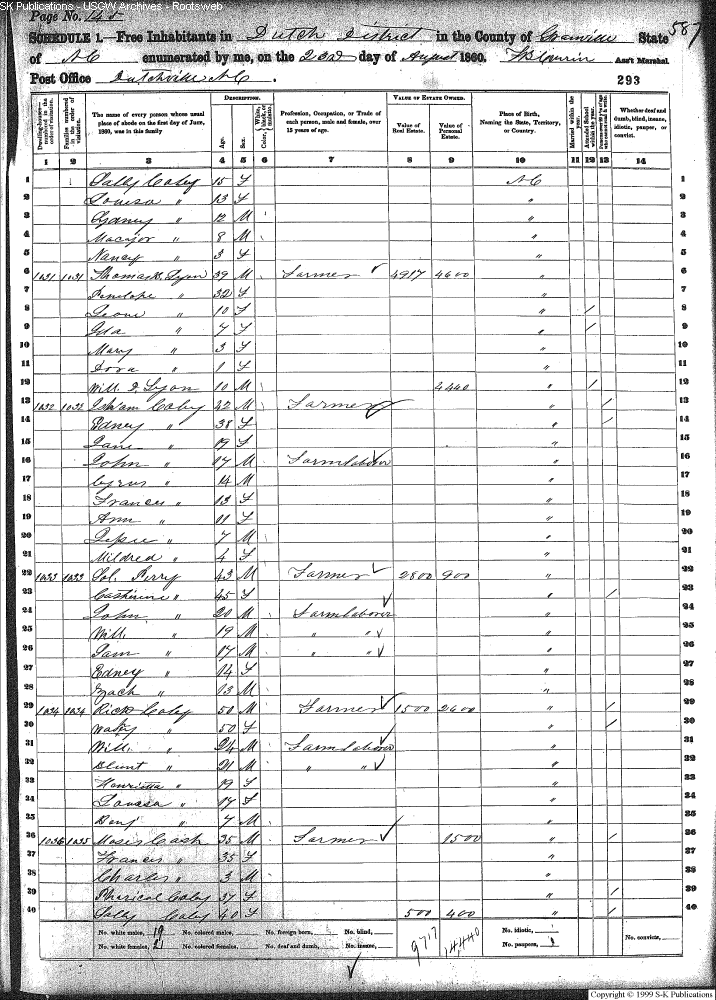 SK Publications - USGW Archives - Rootsweb
Page No. 145
587
SCHEDULE 1.—Free Inhabitants in Dutch District in the County of Granville State
of NC enumerated by me, on the 22d day of August 1860. Ass't Marshal
Post Office Dutchville NC. 293
DESCRIPTION. VALUE OF ESTATE OWNED.
Dwelling-houses—numbered in the order of visitation. Families numbered in the order of visitation. The name of every person whose usual place of abode on the first day of June, 1860, was in this family. Age. Sex. Color, White, black, or mulatto. Profession, Occupation, or Trade of each person, male and female, over 15 years of age. Value of Real Estate. Value of Personal Estate. Place of Birth, Naming the State, Territory, or Country. Married within the year. Attended School within the year. Whether deaf and dumb, blind, insane, idiotic, pauper, or convict.
1 2 3 4 5 6 7 8 9 10 11 12 13 14
1 Sally Coley 15 F NC 1
2 Louisa " 13 F " 2
3 Sydney " 12 M " 3
4 " 8 M " 4
5 Nancy " 3 F " 5
6 1031 1031 Thomas Lyon 39 M Farmer 4917 4600 " 6
7 Penelope " 32 F " 7
8 " 10 F " / 8
9 Ida " 7 F " / 9
10 Mary " 3 F " 10
11 Dora " 1 F " 11
12 Will. Lyon 10 M 4440 " / 12
13 1032 1032 Isham Coley 42 M Farmer " / 13
14 Edney " 38 F " / 14
15 Jane " 19 F " 15
16 John " 17 M Farm laborer " 16
17 Cyrus " 14 M " 17
18 Frances " 13 F " 18
19 Ann " 11 F " 19
20 " 7 M " 20
21 Mildred " 4 F " 21
22 1033 1033 Sol. Perry 43 M Farmer 2800 900 " 22
23 Catherine " 45 F " / 23
24 John " 20 M Farm laborer " 24
25 Will. " 19 M " " " 25
26 Sam " 17 M " " " 26
27 Edney " 14 F " 27
28 Zach " 13 M " 28
29 1034 1034 Rich Coley 50 M Farmer 1500 2600 " / 29
30 " 50 F " / 30
31 Will. " 24 M Farm laborer " 31
32 Blunt " 21 M " " " 32
33 Henrietta " 19 F " 33
34 Louisa " 17 F " 34
35 Benj " 7 M " 35
36 1035 1035 Moses Cash 35 M Farmer 1500 " / 36
37 Frances " 35 F " 37
38 Charles " 3 M " 38
39 Coley 37 F " / 39
40 Sally Coley 40 F 500 400 " / 40
No. white males, 19 No. colored males, No. foreign born, No. blind, No. idiotic, No. convicts,
No. white females, 21 No. colored females, No. deaf and dumb, No. insane, No. paupers,
9717 14440
Copyright © 1999 S-K Publications